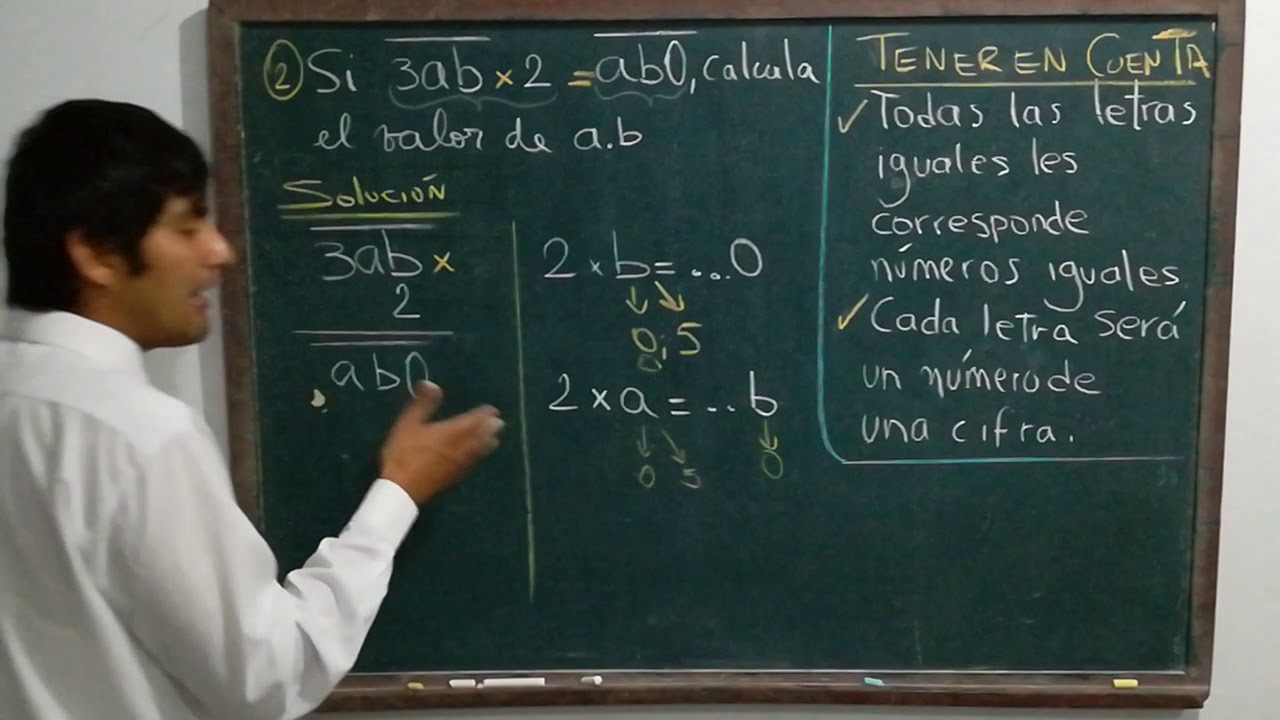 ② Si 3ab × 2 = ab0, calcula
el valor de a.b
Solución
3ab ×
2
ab0
2 × b = ...0
0; 5
2 × a = ... b
0 5 0
TENER EN CUENTA
✓ Todas las letras
iguales les
corresponde
números iguales.
✓ Cada letra será
un número de
una cifra.